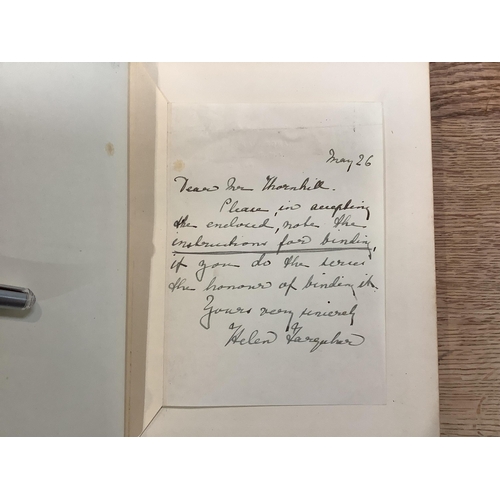 May 26
Dear Mr Thornhill.
Please, in accepting
the enclosed, note the
instructions for binding,
if you do the series
the honour of binding it.
Yours very sincerely
Helen Farquhar